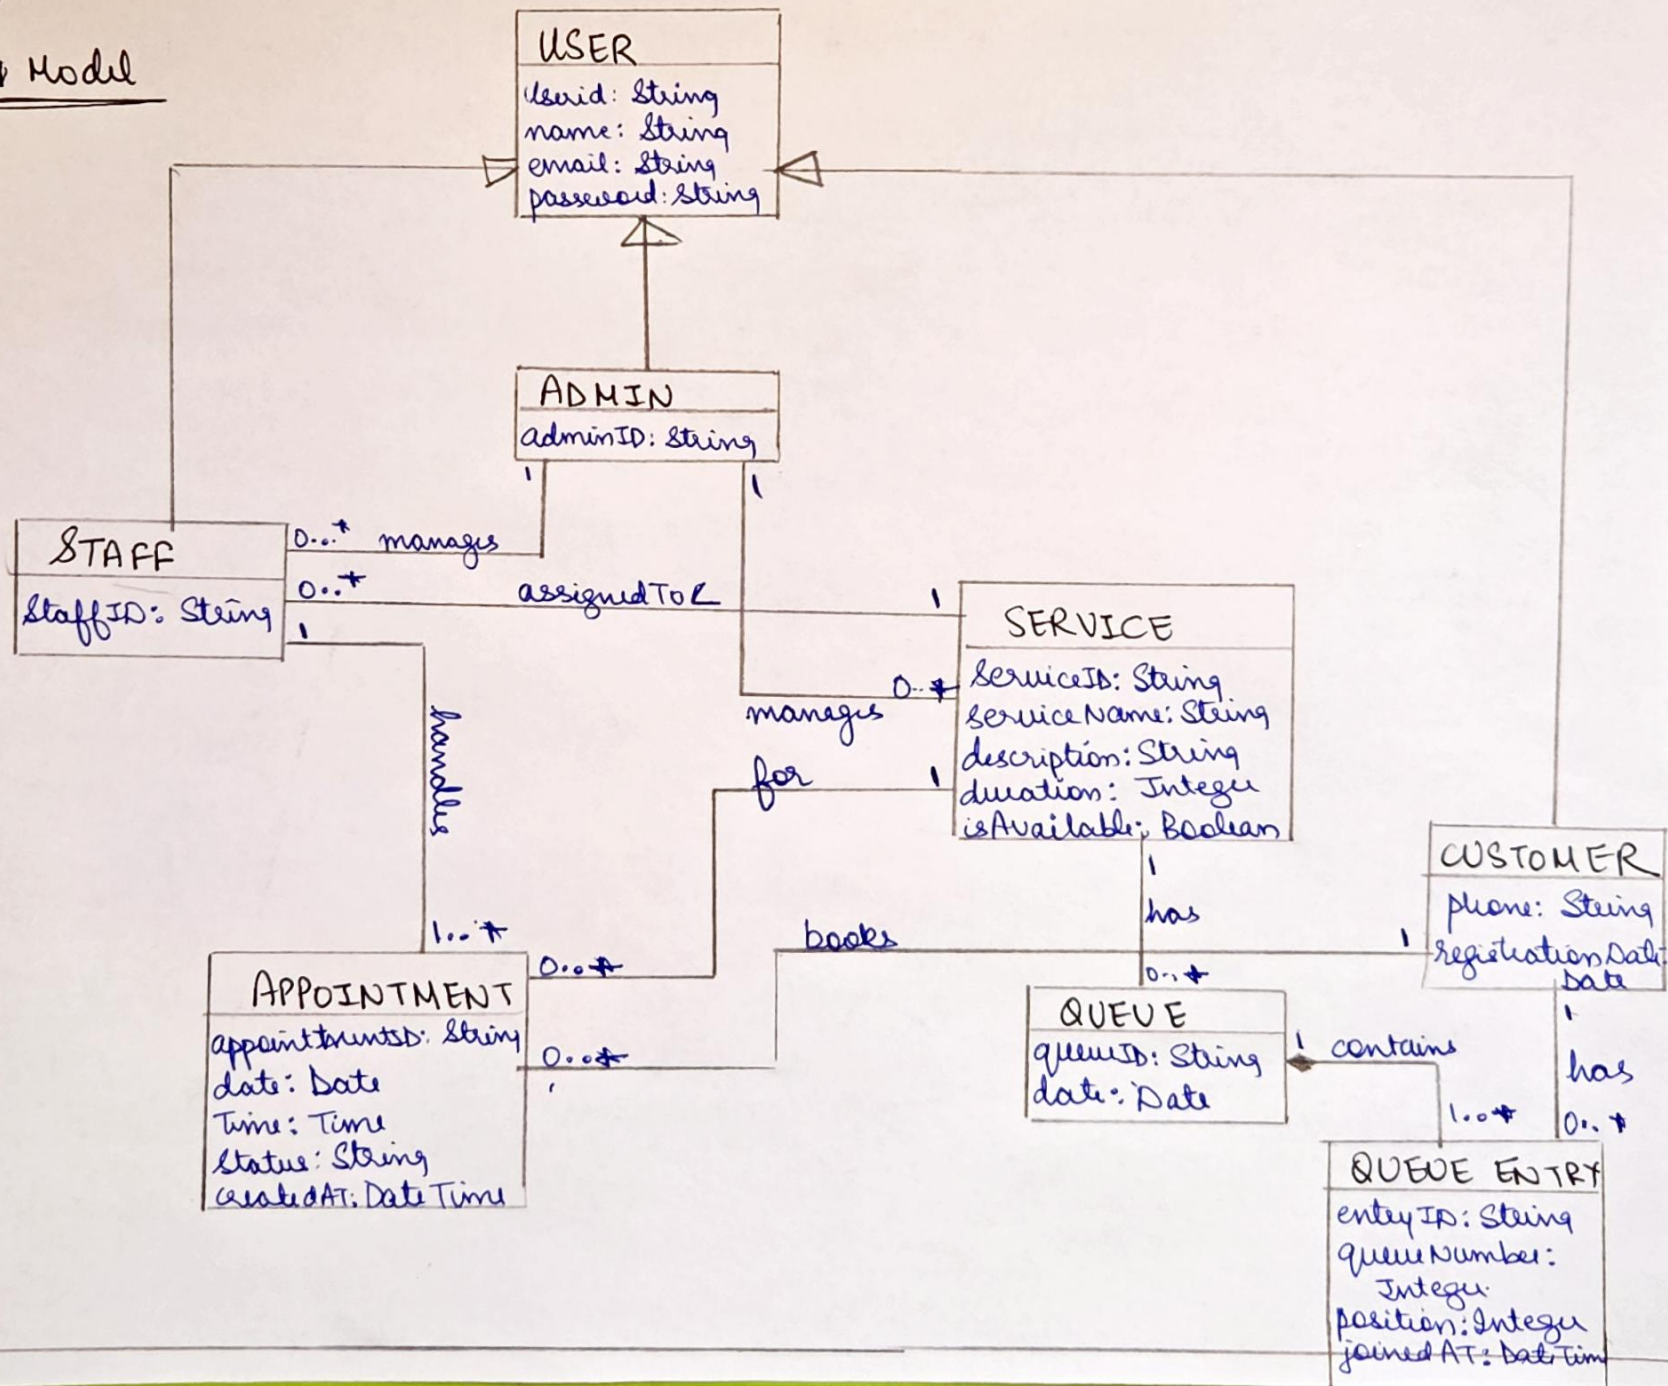 Model
USER
Userid: String
name: String
email: String
password: String
ADMIN
adminID: String
1
1
STAFF
StaffID: String
0...*
manages
0..*
assignedTo
1
1
handles
1..*
SERVICE
ServiceID: String
ServiceName: String
description: String
duration: Integer
isAvailable: Boolean
0..*
manages
for
1
1
has
0..*
CUSTOMER
phone: String
registrationDate:
Date
books
1
0..*
0...*
APPOINTMENT
appointmentID: String
date: Date
Time: Time
Status: String
createdAT: DateTime
QUEUE
queueID: String
date: Date
1
contains
1..*
1
has
0..*
QUEUE ENTRY
entryID: String
queueNumber:
Integer
position: Integer
joinedAT: DateTime